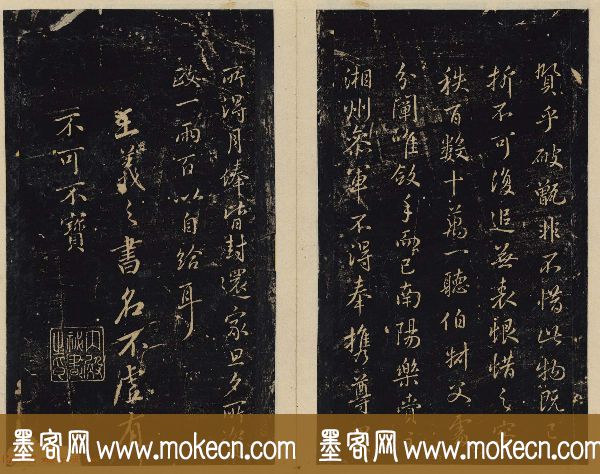 乎破甑非不惜此物既已
折不可復追表恨惜之
秩百數十萬一聽伯父
分唯斂手而已南陽樂
湘州參軍不得奉携尊
所得月俸皆封還家旦夕所
政一兩百以自給耳
王羲之書名不虛有
不可不寶
內殿秘書之印
墨客网 www.mokecn.com 墨客网 www.mokecn.com